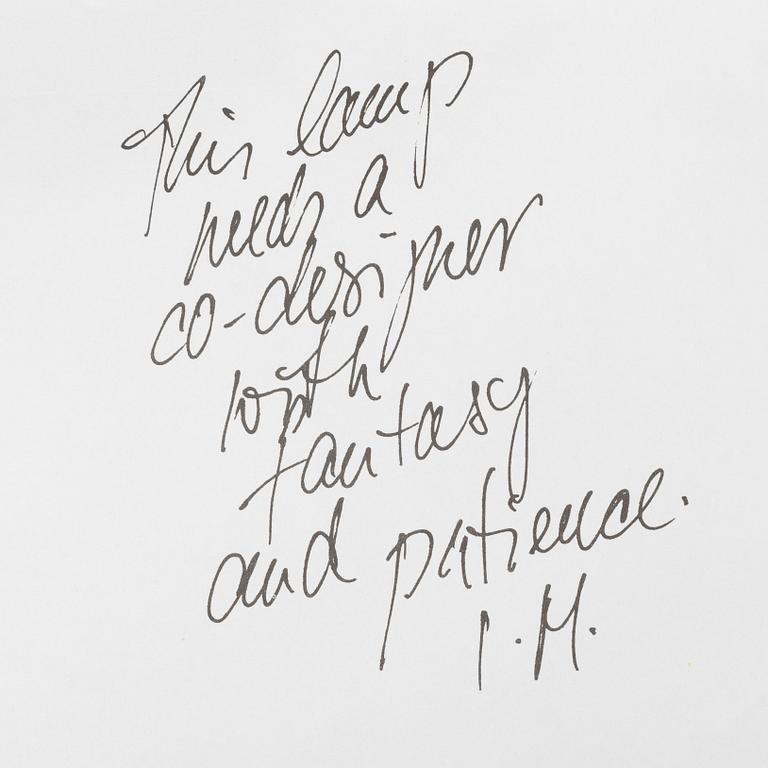 This lamp
needs a
co-designer
with
fantasy
and patience.
I.M.